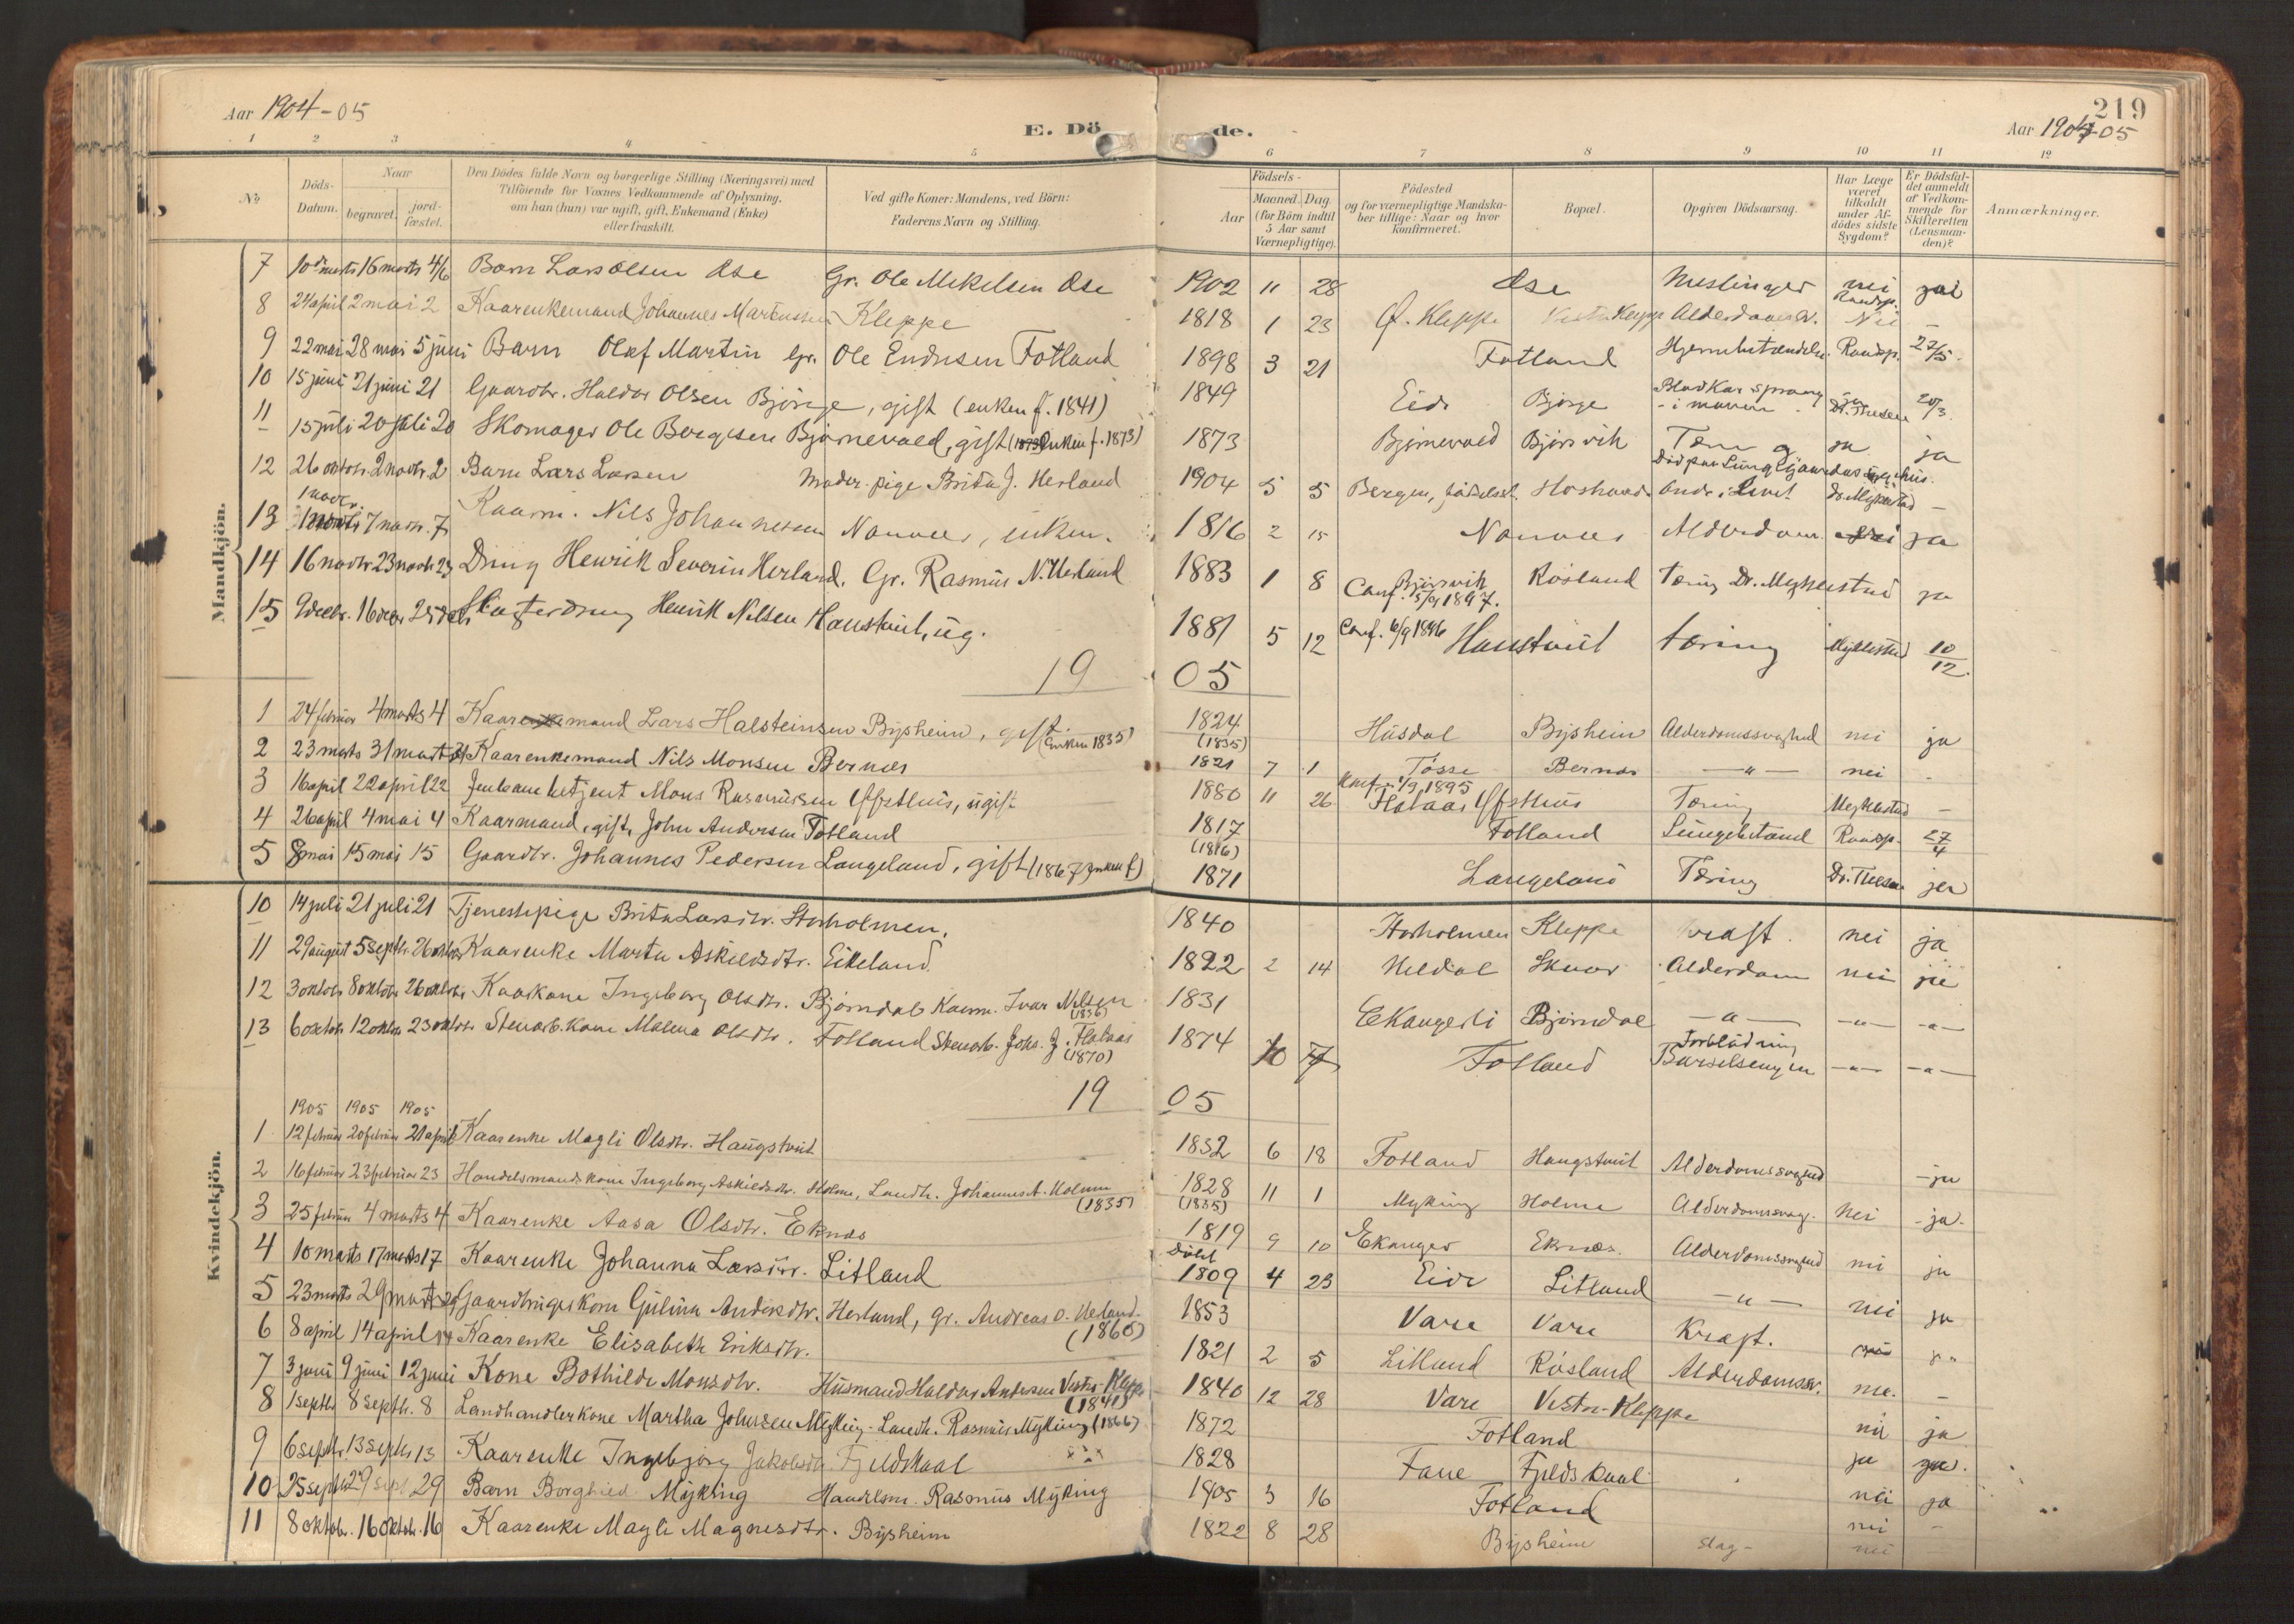 Aar 1904-05
E. Dö de.
219
Aar 1904-05
1 2 3 4 5 6 7 8 9 10 11 12
No
Döds-Datum.
Naar begravet. jord-fæstet.
Den Dödes fulde Navn og borgerlige Stilling (Næringsvei) med Tilföiende for Voxnes Vedkommende af Oplysning, om han (hun) var ugift, gift, Enkemand (Enke) eller fraskilt.
Ved gifte Koner: Mandens, ved Börn: Faderens Navn og Stilling.
Födsels-
Aar
Maaned. Dag (for Börn indtil 5 Aar samt Værnepligtige).
Födested og for værnepligtige Mandskaber tillige: Naar og hvor konfirmeret.
Bopæl.
Opgiven Dödsaarsag.
Har Læge været tilkaldt under Afdödes sidste Sygdom?
Er Dödsfaldet anmeldt af Vedkommende for Skifteretten (Lensmanden)?
Anmærkninger.
Mandkjön.
7 10de marts 16 marts 4/6 Barn Lars Olsen Ose Gr. Ole Mikelsen Ose 1902 11 28 Ose Meslinger nei ja
8 24 april 2 mai 2 Kaarenkemand Johannes Martinussen Kleppe 1818 1 23 Ø. Kleppe Vestr. Klepp Alderdomssv. Nei -
9 22 mai 28 mai 5 juni Barn Olaf Martin Gr. Ole Endresen Fotland 1898 3 21 Fotland Hjernebetændelse Raadsp. 27/5
10 15 juni 21 juni 21 Gaardbr. Haldor Olsen Bjørge, gift (enken f. 1841) 1849 Eide Bjørge Blodkar sprang i maven ja Dr. Thesen
11 15 juli 20 juli 20 Skomager Ole Bergesen Bjørnevald, gift (enken f. 1873) 1873 Bjørnevald Bjørsvik Tæring ja ja
12 26 oktbr. 2 novbr. 2 Barn Lars Larsen Moder: pige Brita J. Herland 1904 5 5 Bergen, fødselsst. Hoshovde Ond i Livet Dr. Myklestad -
Død paa Lungegaardssygehus.
13 1 novbr. 7 novbr. 7 Kaarm. Nils Johannesen Nonaas, enkem. 1816 2 15 Nonaas Alderdom nei ja
14 16 novbr. 23 novbr. 23 Dreng Henrik Severin Herland, Gr. Rasmus N. Herland 1883 1 8 Bjørsvik Conf. 5/9 1897. Røsland Tæring Dr. Myklestad ja
15 9 decbr. 16 decbr. 25 decb. Slagterdreng Henrik Nilsen Haustveit, ug. 1881 5 12 Conf. 6/9 1896 Haustveit tæring Myklestad 10/12.
19 05
1 24 februar 4 marts 4 Kaarmand Lars Halsteinsen Bysheim, gift. (Enken 1835) 1824 (1835) Husdal Bysheim Alderdomssvaghed nei ja
2 23 marts 31 marts 31 Kaarenkemand Nils Monsen Bernæs 1821 7 1 Tosse Bernæs —"— nei -
3 16 april 22 april 22 Jernbanebetjent Mons Rasmussen Øfsthus, ugift 1880 11 26 Konf. 1/9 1895 Flataas Øfsthus Tæring Myklestad -
4 26 april 4 mai 4 Kaarmand, gift, John Andersen Fotland 1817 (1816) Fotland Lungebetænd Raadsp. 27/4
5 8 mai 15 mai 15 Gaardbr. Johannes Pedersen Langeland, gift (1867 Enken f.) 1871 Langeland Tæring Dr. Thesen ja
Kvindekjön.
10 14 juli 21 juli 21 Tjenestepige Brita Larsdtr. Storholmen. 1840 Storholmen Kleppe kræft. nei ja
11 29 august 5 septbr. 26 oktbr. Kaarenke Marta Askildsdtr. Eikeland 1822 2 14 Heldal Skaar Alderdom nei ja
12 3 oktobr. 8 oktobr. 26 oktobr. Kaarkone Ingeborg Olsdtr. Bjørndal Kaarm. Ivar Nilsen (1836) 1831 Ekangerli Bjørndal —"— —"— —"—
13 6 octobr. 12 oktbr. 23 oktobr. Stenarb. kone Malena Olsdtr. Fotland Stenarb. Johs. J. Flataas (1870) 1874 10 7 Fotland Forblødning Barselsengen —"— —"—
1905 1905 1905
19 05
1 12 februar 20 februar 21 april Kaarenke Magli Olsdtr. Haugstveit 1832 6 18 Fotland Haugstveit Alderdomssvaghed - ja
2 16 februar 23 februar 23 Handelsmandskone Ingeborg Askildsdtr. Holme, Landh. Johannes A. Holme (1835) 1828 (1835) 11 1 Myking Holme Alderdomssvagh. nei - ja.
3 25 februar 4 marts 4 Kaarenke Aasa Olsdtr. Eknæs 1819 9 10 Ekanger Eknæs. Alderdomssvaghed nei ja
4 10 marts 17 marts 17 Kaarenke Johanna Larsdtr. Litland Døbt 1809 4 23 Eide Litland —"— nei ja
5 23 marts 29 marts 29 Gaardbrugerkone Gulina Andersdtr. Herland, gr. Andreas O. Herland (1860) 1853 Vare Vare Kræft. nei ja
6 8 april 14 april 14 Kaarenke Elisabeth Eriksdtr. 1821 2 5 Litland Røsland Alderdomssv. nei. -
7 3 juni 9 juni 12 juni Kone Bothilde Monsdtr. Husmand Haldor Andersen Vestre-Kleppe (1841) 1840 12 28 Vare Vestre-Kleppe nei ja
8 1 septbr. 8 septbr. 8 Landhandlerkone Martha Johnsen Myking - Landh. Rasmus Myking (1866) 1872 Fotland ja ja.
9 6 septbr. 13 septbr. 13 Kaarenke Ingebjørg Jakobsdtr. Fjeldskaal 1828 Fane Fjeldskaal nei ja
10 25 septbr. 29 sept 29 Barn Borghild Myking Handelsm. Rasmus Myking 1905 3 16 Fotland nei -
11 8 oktobr. 16 oktobr. 16 Kaarenke Magli Magnesdtr. Bysheim 1822 8 28 Bysheim Slag - nei